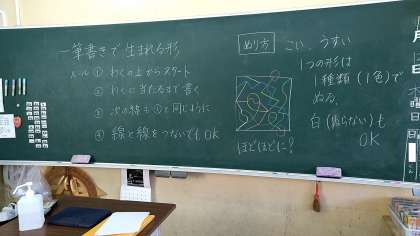 一筆書きで生まれる形
ルール ① わくの上からスタート
② わくに当たるまで書く
③ 次の線も①と同じように
④ 線と線をつないでもOK
ぬり方
こい、うすい
1つの形は
1種類(1色)で
ぬる。
白(ぬらない)も
OK
ほどほどに?
月
日
曜
日